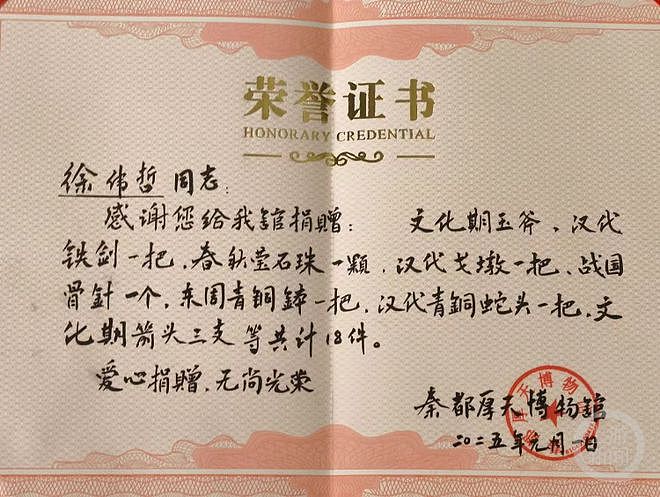 荣誉证书
HONORARY CREDENTIAL
徐伟哲 同志：
感谢您给我馆捐赠： 文化期玉斧、汉代
铁剑一把、春秋莹石珠一颗、汉代戈墩一把、战国
骨针一个、东周青铜一把、汉代青铜蛇头一把、文
化期箭头三支等共计18件。
爱心捐赠、无尚光荣
秦都厚天博物馆
二〇二五年元月一日